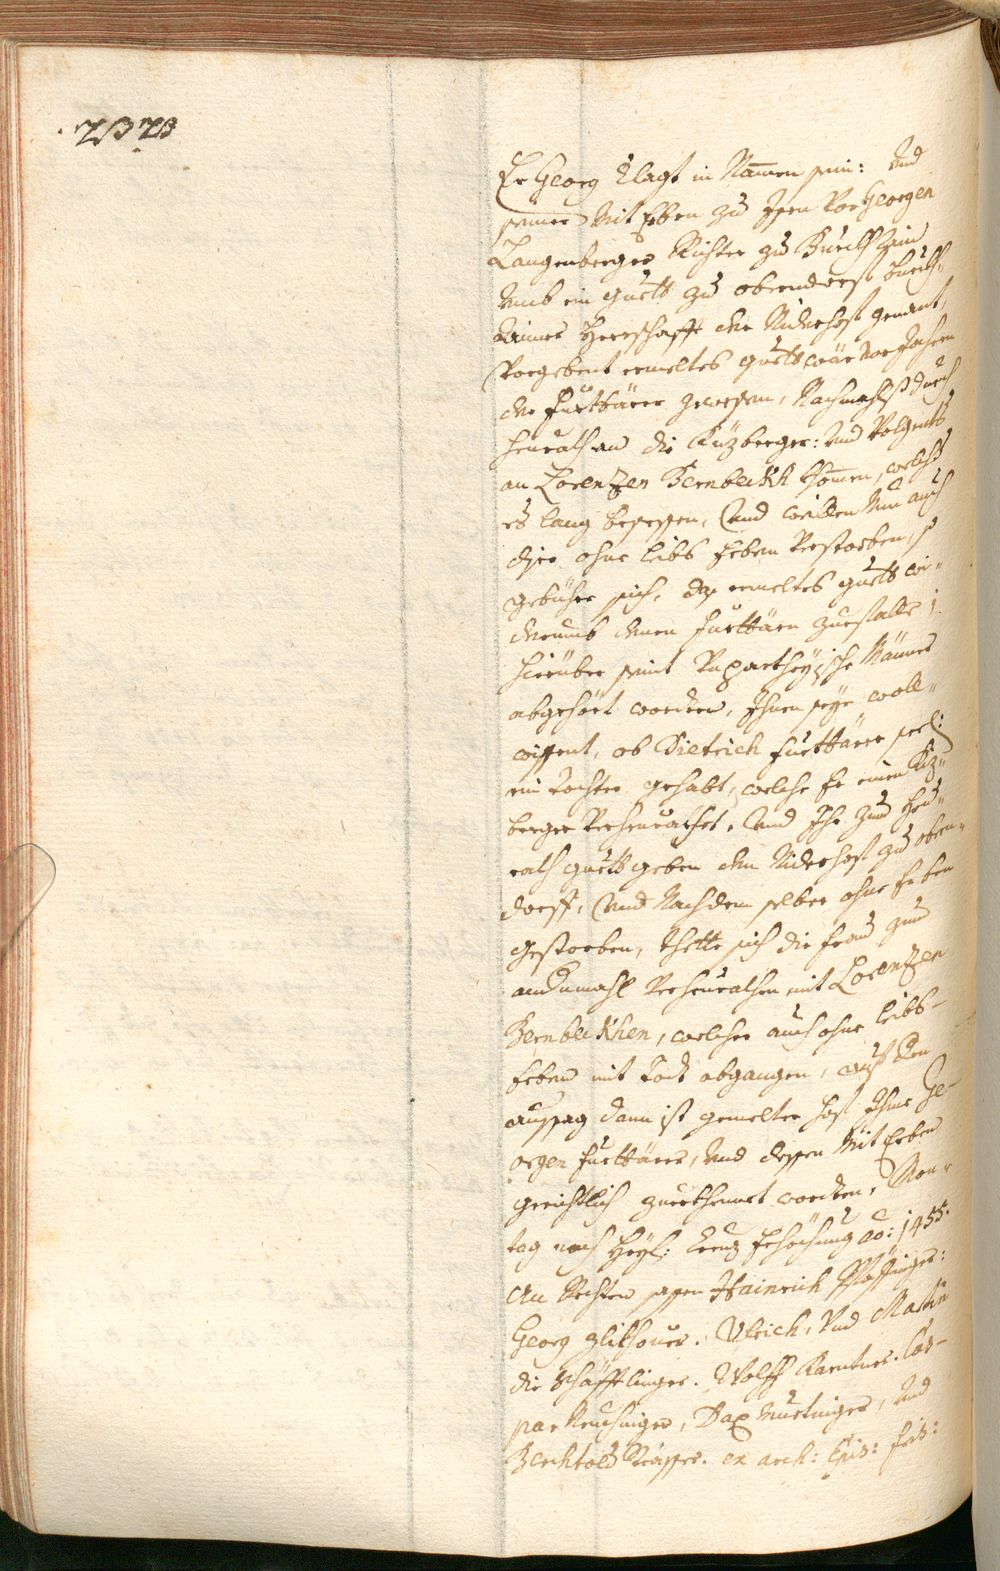 Er Georg klagt in Namen sein: und
seiner Mit Erben zu Ihen Vor Georgen
Langenberger Richter zu Burckhrain
umb ein guett zu oberndorff Burckh-
rainer Herrschafft der Niderhof genant,
Vorgebent ermeltes guett wär vor Jahren
der Furttärer gewesen, Nachmahlß durch
heurath an die Kizberger: und Volgents
an Lorenzen Bernbeckh khomen, welcher
es lang besessen, Und weillen Nun auch
diser ohne leibs Erben Verstorben, so
gebühre sich, dz ermeltes guett wi-
derumb denen Furttärn zuestalle:
Hierüber seint Unpartheyische Männer
abgehört worden, Ihnen seye woll-
wissent, ob Dietrich Furttärer seel:
ein tochter gehabt, welche Er einem Kiz-
berger Verheurathet, Und Ihr zum Heu-
rath guett geben den Niderhof zu obern-
dorff, Und Nachdem selber ohne Erben
gestorben, Thette sich die Frau zum
andermahl Verheurathen mit Lorenzen
Bernbeckhen, welcher auch ohne leibs-
Erben mit Todt abgangen, auf den
aussag dann ist gemelter hof Ihme Ge-
orgen Furttärer, und dessen Mit Erben
gerichtlich zuerkhennet worden, Mon-
tag nach Heyl: Creuz Erhöchung ao: 1455.
An Rechten sassen Hainrich Pfäffinger:
Georg Zlithover. Ulrich, Und Martin
die Schäfftlinger. Wolff Karntner. Cas-
par Neuchinger, Dax Murtinger, Und
Berchtold Krapfer. ex arch: Epis: Fris: